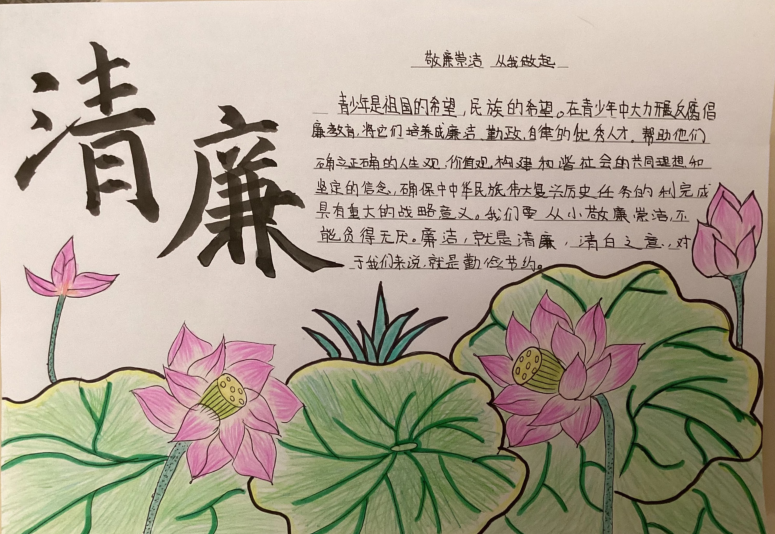 清廉
敬廉崇洁 从我做起
青少年是祖国的希望,民族的希望。在青少年中大力开展反腐倡
廉教育,将他们培养成廉洁、勤政、自律的优秀人才。帮助他们
确立正确的人生观、价值观,构建和谐社会的共同理想和
坚定的信念,确保中中华民族伟大复兴历史任务的利完成
具有重大的战略意义。我们要从小敬廉崇洁,不
能贪得无厌。廉洁,就是清廉,清白之意,对
于我们来说,就是勤俭节约。